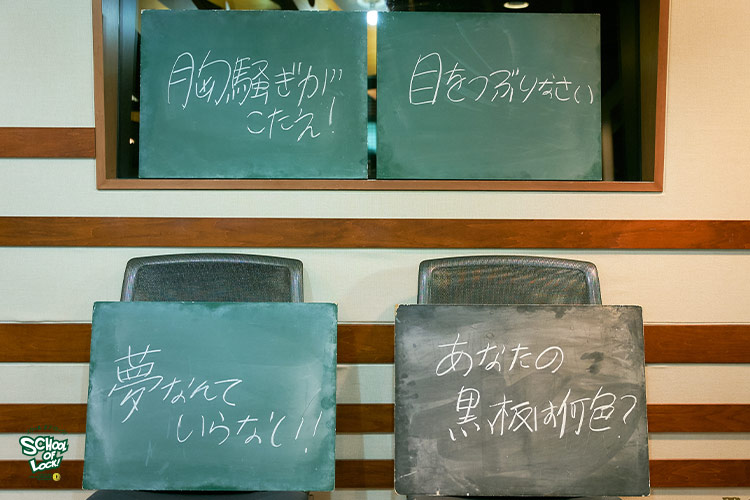 胸騒ぎが
こたえ!
目をつぶりなさい
夢なんて
いらない!!
あなたの
黒板は何色?
SCHOOL
OF
LOCK!